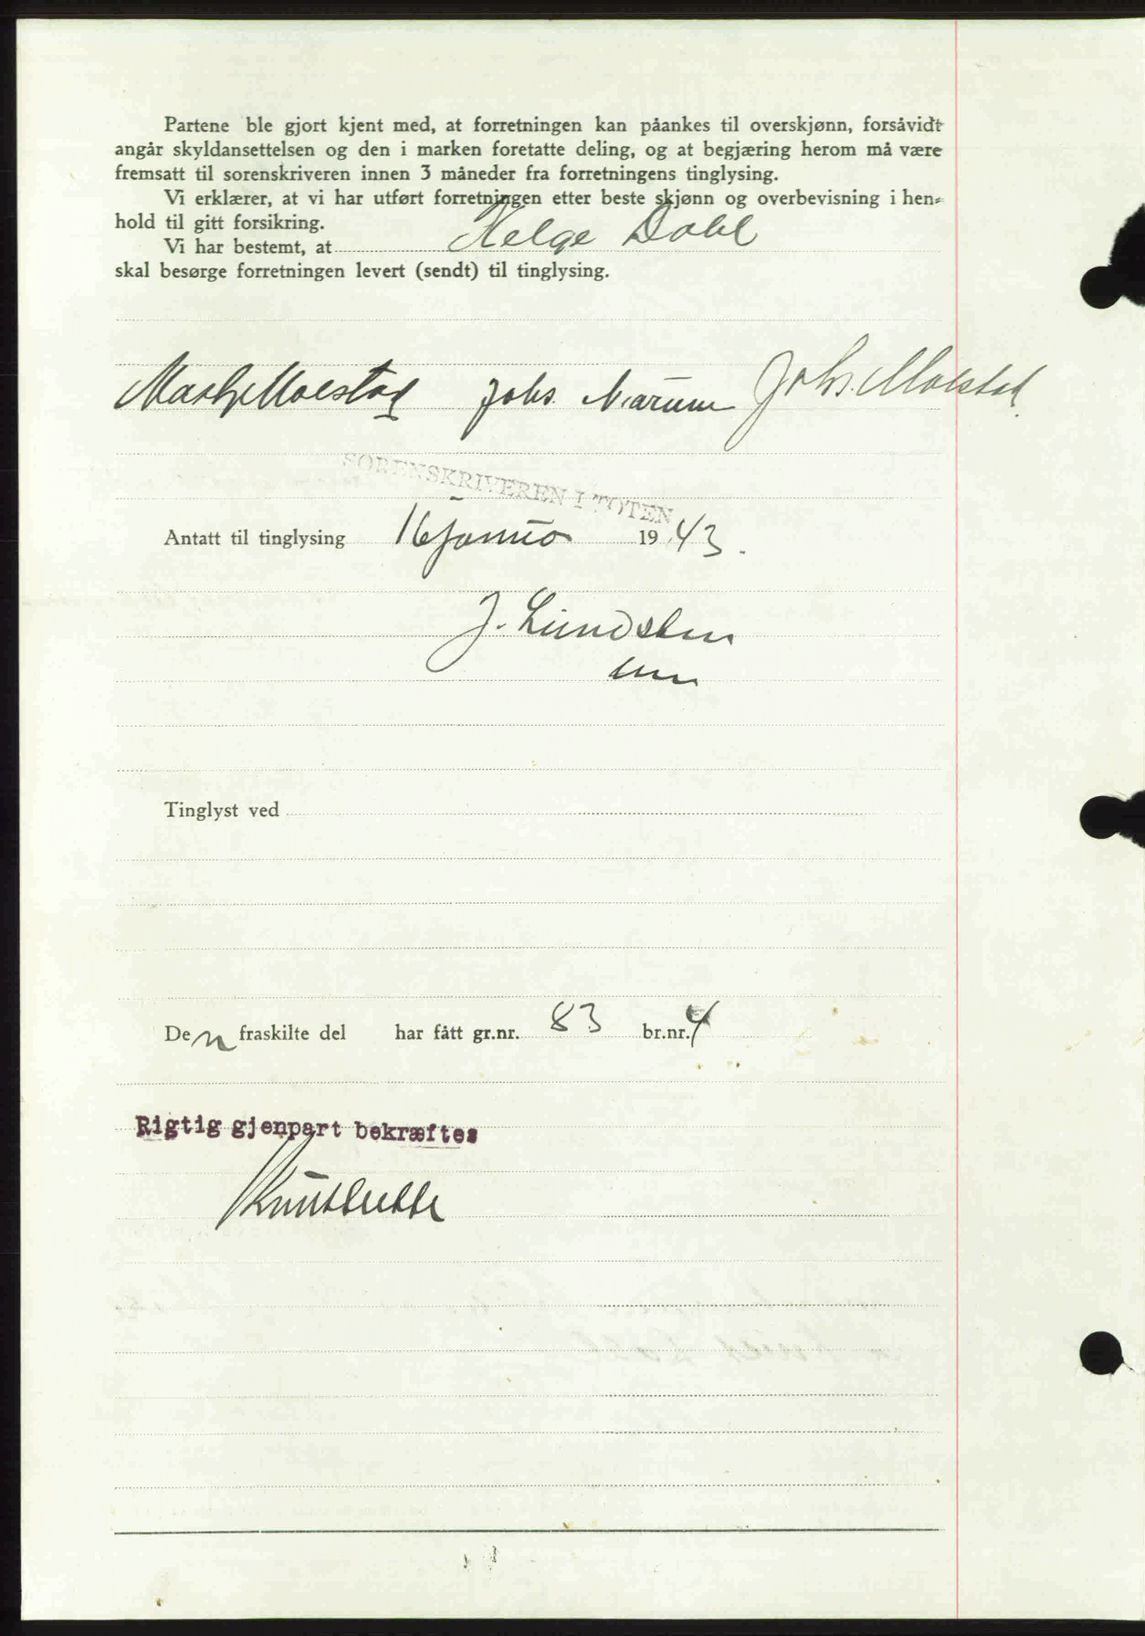 Partene ble gjort kjent med, at forretningen kan påankes til overskjønn, forsåvidt
angår skyldansettelsen og den i marken foretatte deling, og at begjæring herom må være
fremsatt til sorenskriveren innen 3 måneder fra forretningens tinglysing.
Vi erklærer, at vi har utført forretningen etter beste skjønn og overbevisning i hen-
hold til gitt forsikring.
Vi har bestemt, at Helge Dahl
skal besørge forretningen levert (sendt) til tinglysing.
Molstad Johs. Narum Johs. Molstad
SORENSKRIVEREN I TOTEN
Antatt til tinglysing 16 januar 1943.
J. Lundsten
Tinglyst ved
Den fraskilte del har fått gr.nr. 83 br.nr. 4
Rigtig gjenpart bekræftes